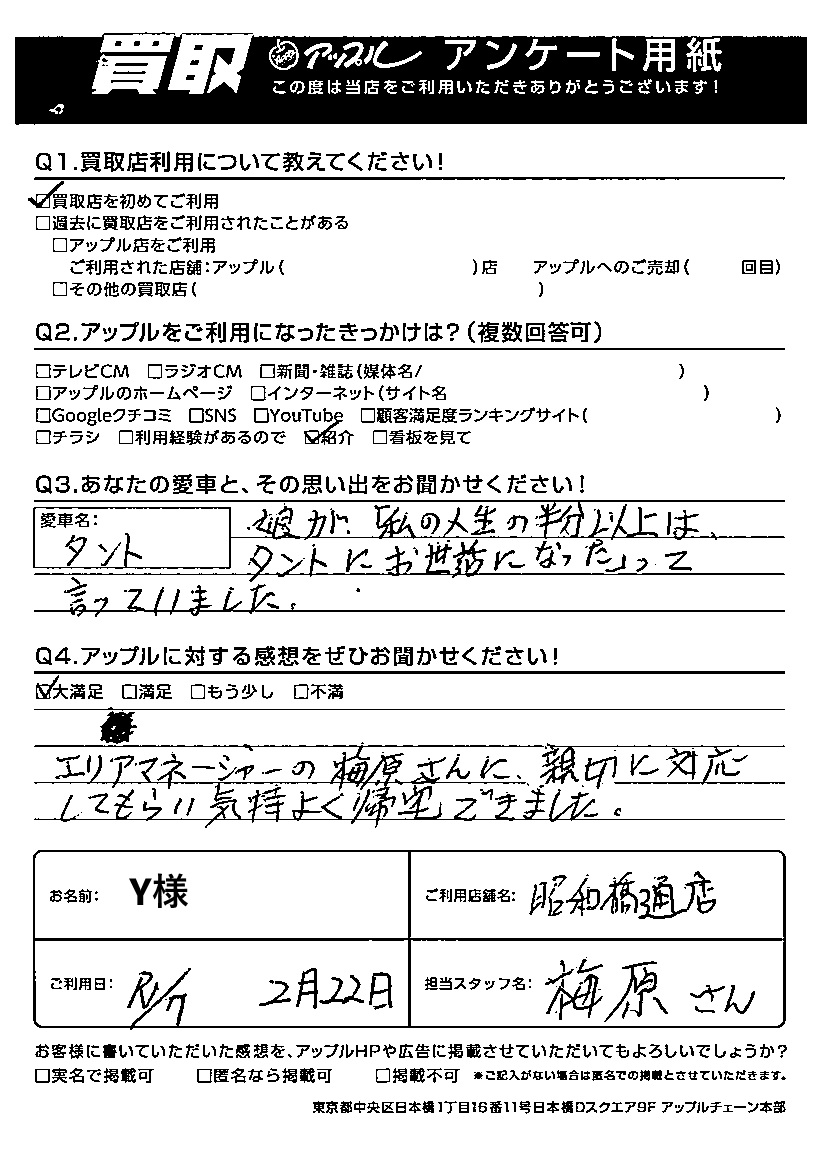 買取 アップル アンケート用紙
この度は当店をご利用いただきありがとうございます!
Q1.買取店利用について教えてください!
☑買取店を初めてご利用
□過去に買取店をご利用されたことがある
□アップル店をご利用
ご利用された店舗:アップル( )店 アップルへのご売却( 回目)
□その他の買取店( )
Q2.アップルをご利用になったきっかけは?(複数回答可)
□テレビCM □ラジオCM □新聞・雑誌(媒体名/ )
□アップルのホームページ □インターネット(サイト名 )
□Googleクチコミ □SNS □YouTube □顧客満足度ランキングサイト( )
□チラシ □利用経験があるので ☑紹介 □看板を見て
Q3.あなたの愛車と、その思い出をお聞かせください!
愛車名: 娘が、「私の人生の半分以上は、
タント タントにお世話になった」って
言っていました。
Q4.アップルに対する感想をぜひお聞かせください!
☑大満足 □満足 □もう少し □不満
エリアマネージャーの梅原さんに、親切に対応
してもらい気持よく帰宅できました。
お名前: Y様 ご利用店舗名: 昭和橋通店
ご利用日: R/7 2月22日 担当スタッフ名: 梅原さん
お客様に書いていただいた感想を、アップルHPや広告に掲載させていただいてもよろしいでしょうか?
□実名で掲載可 □匿名なら掲載可 □掲載不可 ※ご記入がない場合は匿名での掲載とさせていただきます。
東京都中央区日本橋1丁目16番11号日本橋Dスクエア9F アップルチェーン本部